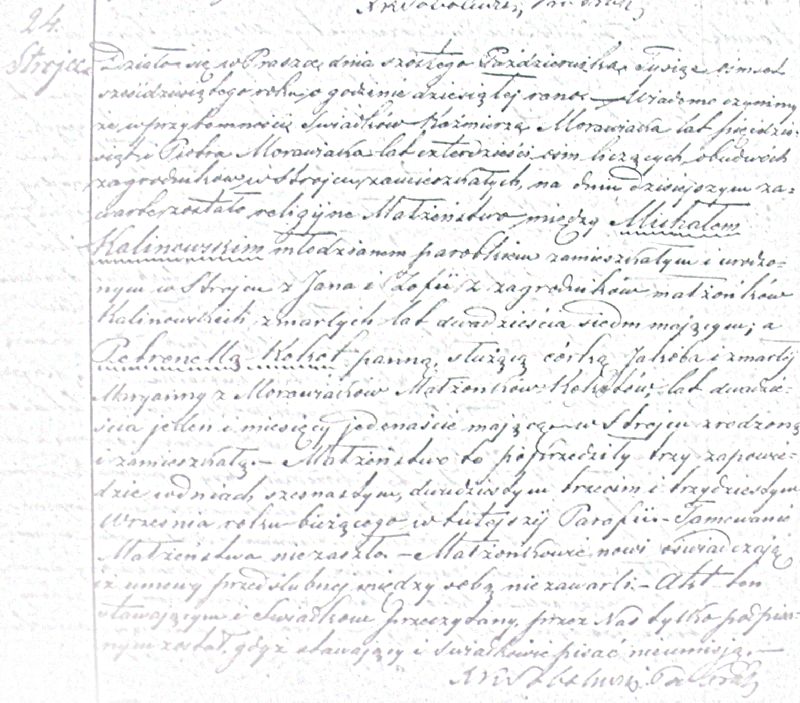 24.
Strojec
Działo się w Praszce dnia szóstego Października Tysiąc ośmset
sześćdziesiątego roku o godzinie dziesiątej rano. – Wiadomo czynimy
że w przytomności Świadków Kaźmirza Morawiaka lat pięćdzie-
siąt i Piotra Morawiaka lat czterdzieści ośm liczących, obudwóch
zagrodników w Strojcu zamieszkałych, na dniu dzisiejszym za-
warte zostało religijne Małżeństwo między Michałem
Kalinowskim młodzianem parobkiem zamieszkałym i urodzo-
nym w Strojcu z Jana i Zofii z zagrodników małżonków
Kalinowskich zmarłych lat dwadzieścia siedm mającym; a
Petronellą Kokot panną, służącą córką Jakóba i zmarłej
Maryanny z Morawiaków Małżonków Kokotów, lat dwadzie-
ścia jeden i miesięcy jedenaście mającą w Strojcu zrodzoną
i zamieszkałą. – Małżeństwo to poprzedziły trzy zapowie-
dzie w dniach szesnastym, dwudziestym trzecim i trzydziestym
Września roku bieżącego w tutejszej Parafii. – Tamowanie
Małżeństwa nie zaszło. – Małżonkowie nowi oświadczają
iż umowy przedślubnej między sobą nie zawarli. – Akt ten
stawającym i Świadkom przeczytany, przez Nas tylko podpisa-
nym został, gdyż stawający i Świadkowie pisać nieumieją. –